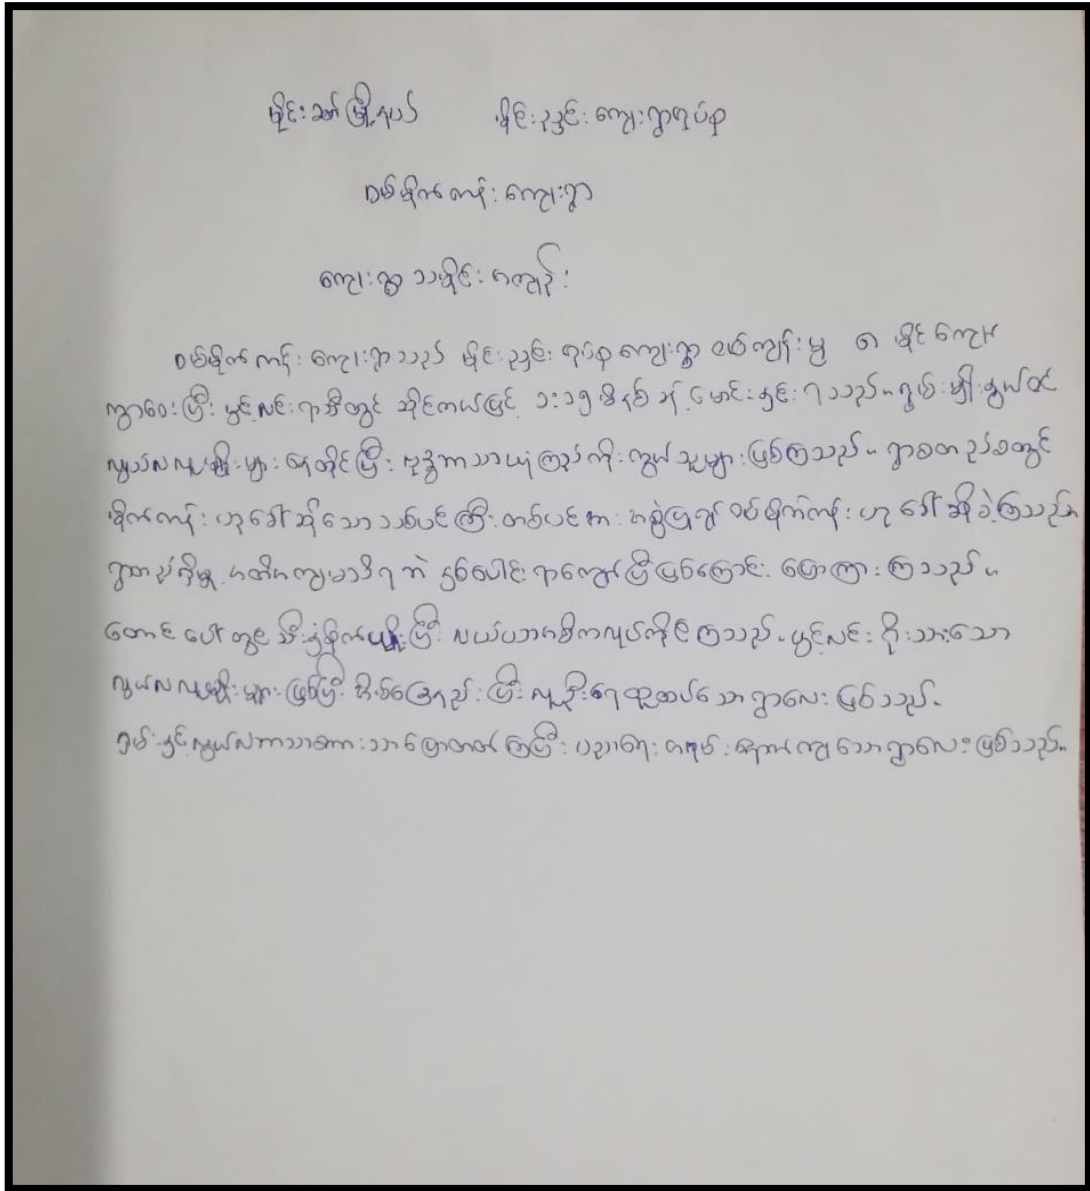 မိုင်းဆတ်မြို့နယ် မိုင်းညှင်းကျေးရွာအုပ်စု
ဝမ်မိုက်ကန်းကျေးရွာ
ကျေးရွာသမိုင်းအကျဉ်း
ဝမ်မိုက်ကန်းကျေးရွာသည် မိုင်းညှင်းအုပ်စုကျေးရွာ မှ ၈ မိုင်ကျော်
ကွာဝေးပြီး ပွင့်လင်းရာသီတွင် ဆိုင်ကယ်ဖြင့် မိနစ်ခန့် မောင်းနှင်းရသည်။ ရှမ်းမျိုးနွယ်ဝင်
လူမျိုးများ နေထိုင်ပြီး ဗုဒ္ဓဘာသာယုံကြည်ကိုးကွယ်သူများ ဖြစ်ကြသည်။ ရွာစတည်စတွင်
မိုက်ကန်းဟုခေါ်ဆိုသော သစ်ပင်ကြီးတစ်ပင်အား အစွဲပြု၍ ဝမ်မိုက်ကန်းဟု ခေါ်ဆိုခဲ့ကြသည်။
ရွာတည်ရှိမှု အတိအကျမသိရဘဲ နှစ်ပေါင်းရာကျော်ပြီဖြစ်ကြောင်း ပြောကြားကြသည်။
တောင်ပေါ်တွင် သီးနှံစိုက်ပျိုးပြီး လယ်ယာအဓိကလုပ်ကိုင်ကြသည်။ ပွင့်လင်းရိုးသားသော
လူမျိုးများဖြစ်ပြီး အိမ်ခြေနည်းပြီး လူဦးရေထူထပ်သောရွာလေးဖြစ်သည်။
ရှမ်းနှင့် ဘာသာစကားသာပြောတတ်ကြပြီး ပညာရေးအရမ်းနောက်ကျသောရွာလေးဖြစ်သည်။